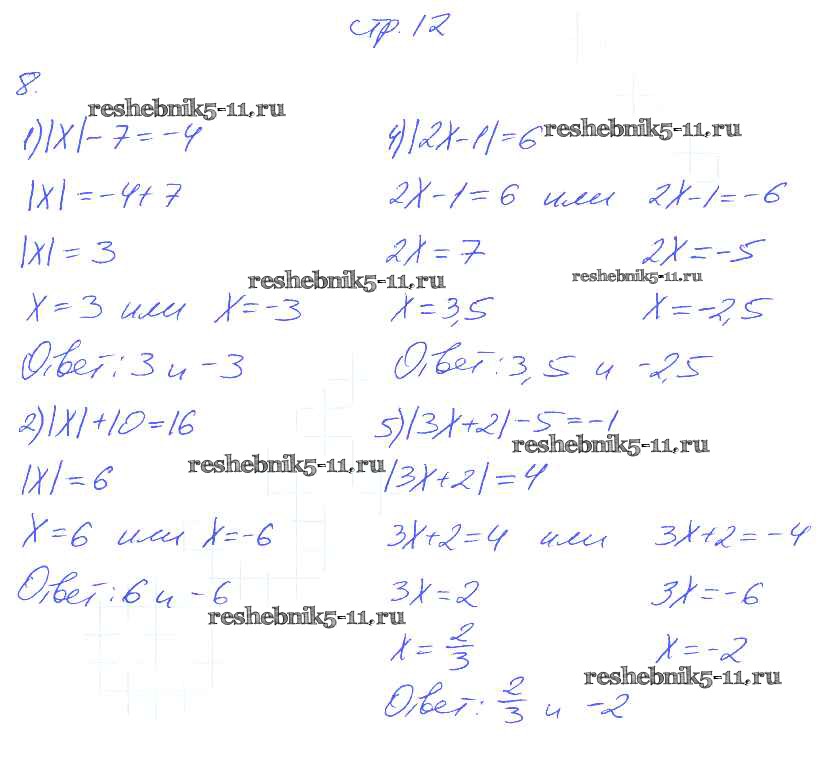 стр. 12
8.
reshebnik5-11.ru
1) |x| - 7 = -4
|x| = -4 + 7
|x| = 3
reshebnik5-11.ru
x = 3 или x = -3
Ответ: 3 и -3
2) |x| + 10 = 16
reshebnik5-11.ru
|x| = 6
x = 6 или x = -6
Ответ: 6 и -6
reshebnik5-11.ru
4) |2x - 1| = 6
reshebnik5-11.ru
2x - 1 = 6 или 2x - 1 = -6
2x = 7 2x = -5
reshebnik5-11.ru
x = 3,5 x = -2,5
Ответ: 3,5 и -2,5
5) |3x + 2| - 5 = -1
reshebnik5-11.ru
|3x + 2| = 4
3x + 2 = 4 или 3x + 2 = -4
3x = 2 3x = -6
x = 2/3 x = -2
reshebnik5-11.ru
Ответ: 2/3 и -2